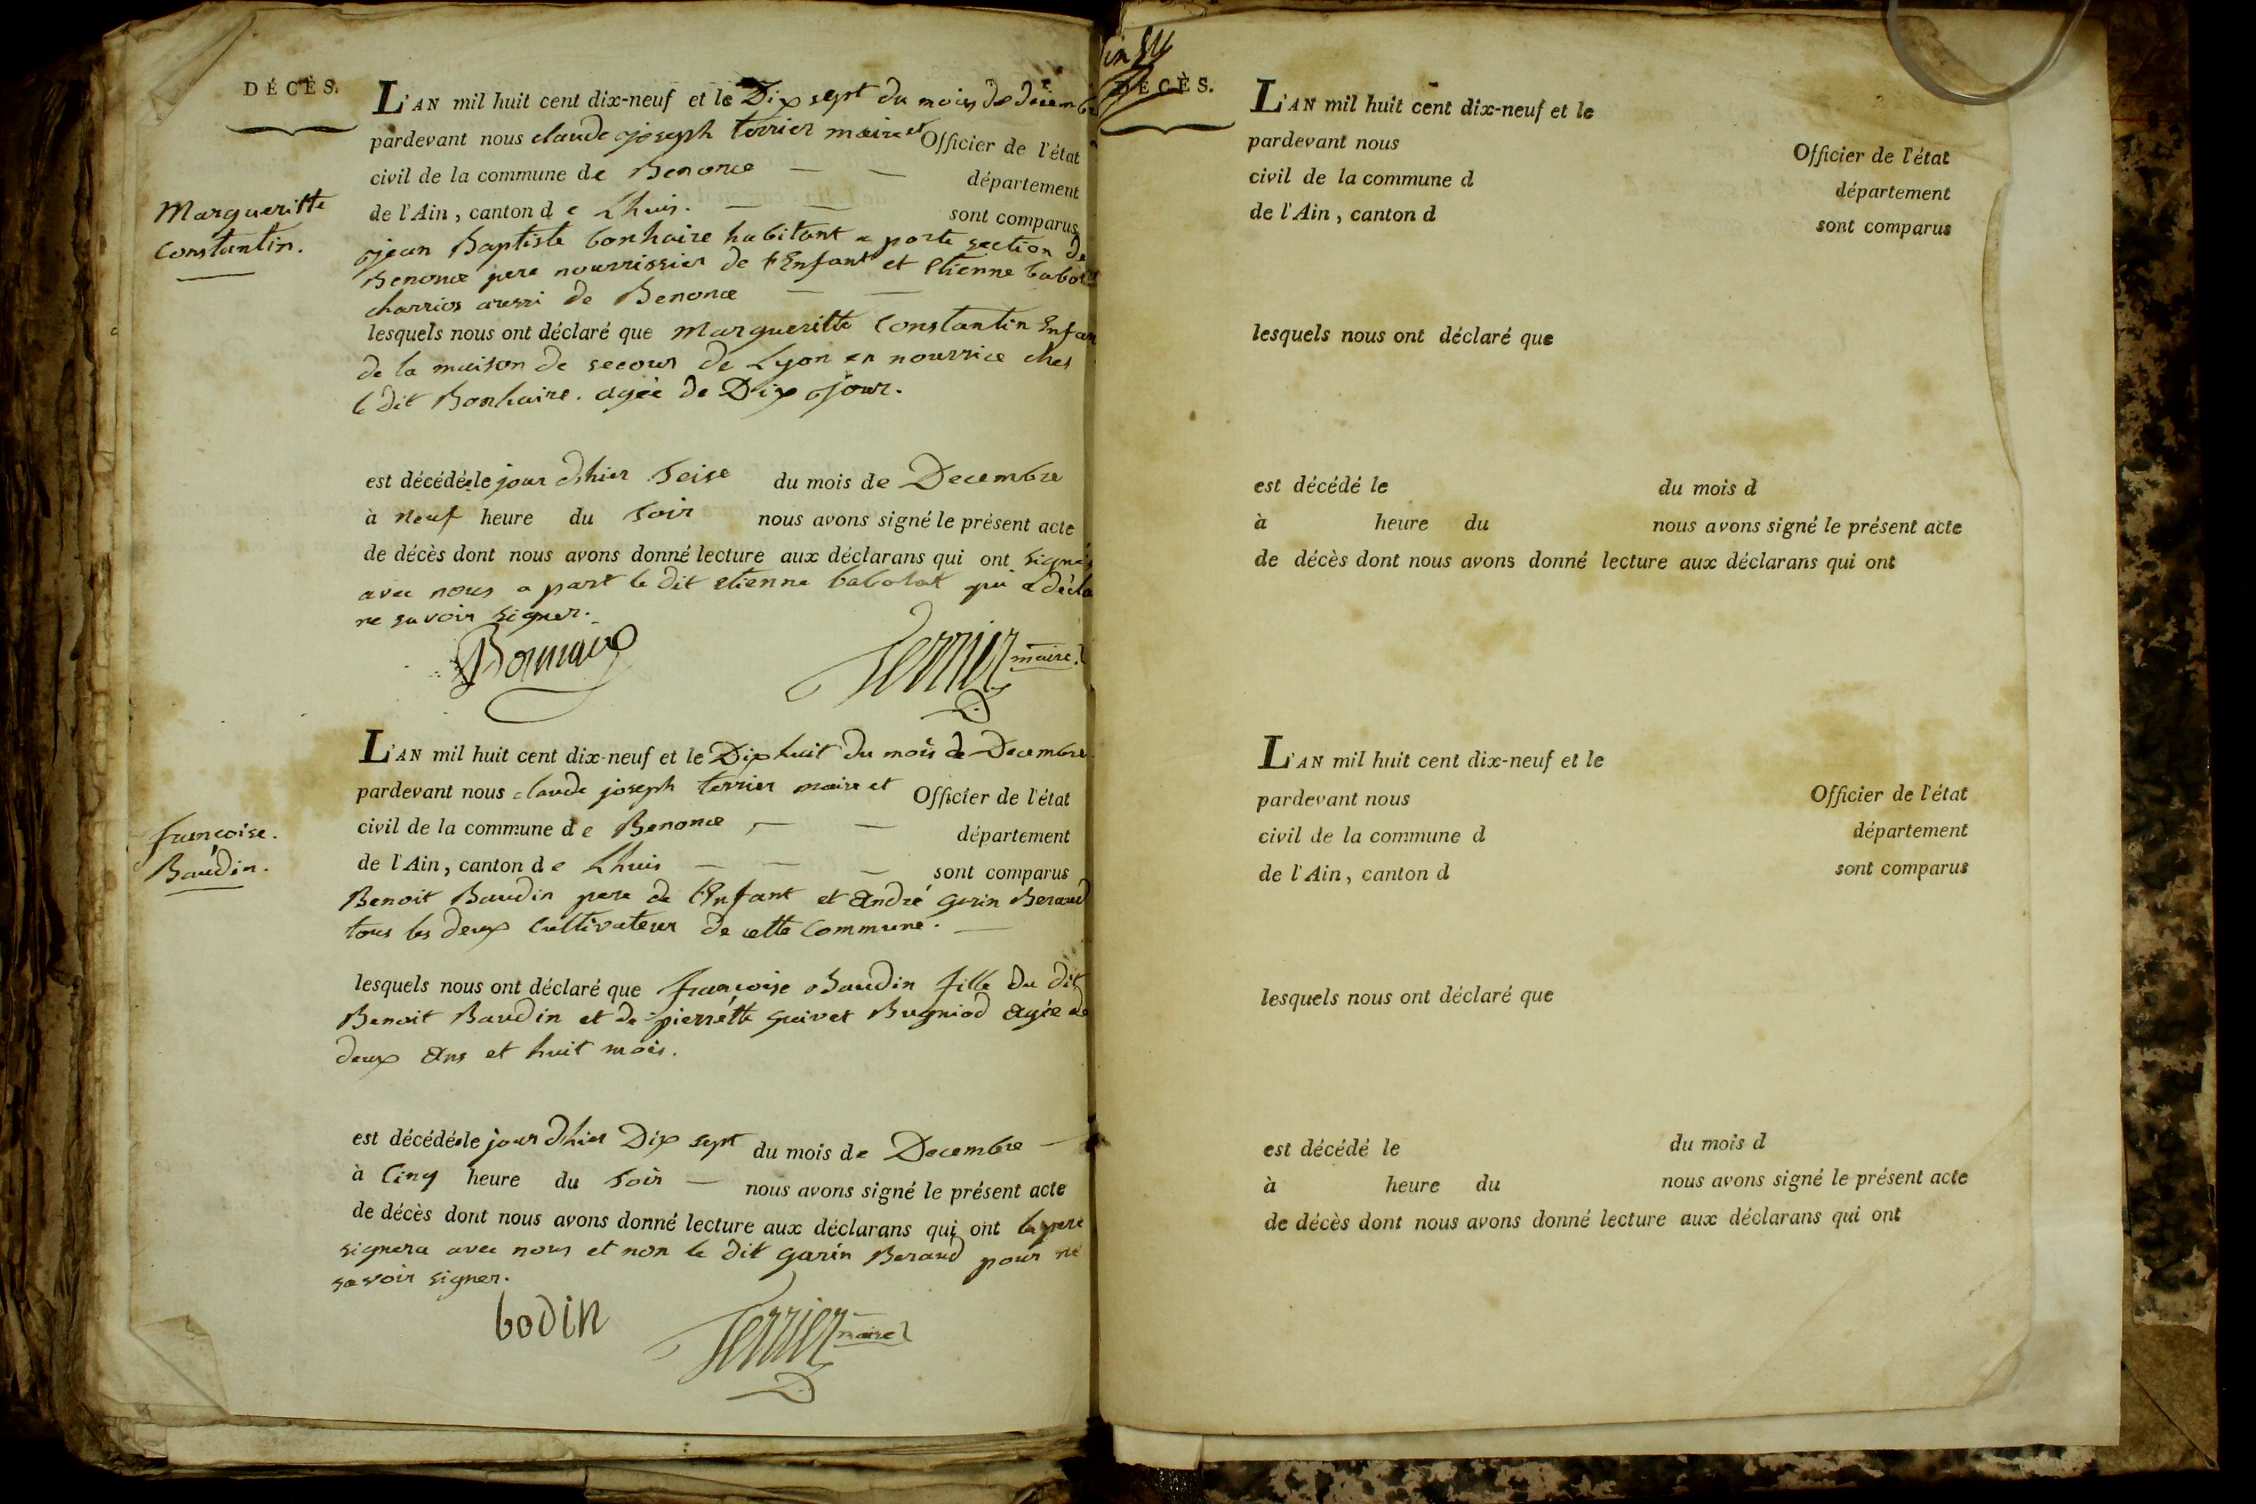 DÉCÈS.
L'AN mil huit cent dix-neuf et le Dix sept du mois de décemb
pardevant nous claude joseph terrier maire et Officier de l'état
civil de la commune de Benonce — — département
de l'Ain, canton de Lhuis. — — sont comparus
Margueritte
Constantin.
jean Baptiste bonhaire habitant a porte section de
Benonce pere nourrissier de l'Enfant et Etienne
charrios aussi de Benonce — —
lesquels nous ont déclaré que Margueritte Constantin Enfan
de la maison de secour de Lyon en nourrice ches
le dit Bonhaire. agée de Dix jour.
est décédée le jour dhier Seise du mois de Decembre
à neuf heure du Soir nous avons signé le présent acte
de décès dont nous avons donné lecture aux déclarans qui ont signés
avec nous a part le dit etienne babolat qui a décla
ne savoir signer.
Terrier maire
L'AN mil huit cent dix-neuf et le Dix huit du mois de Decembre
pardevant nous claude joseph terrier maire et Officier de l'état
civil de la commune de Benonce — — département
de l'Ain, canton de Lhuis — — — sont comparus
françoise.
Baudin.
Benoit Baudin pere de l'Enfant et André garin Beraud
tous les deux Cultivateur de cette Commune. —
lesquels nous ont déclaré que françoise Baudin fille du dit
Benoit Baudin et de pierrette guivet Bugniod Agée de
deux Ans et huit mois.
est décédée le jour dhier Dix sept du mois de Decembre —
à Cinq heure du Soir — nous avons signé le présent acte
de décès dont nous avons donné lecture aux déclarans qui ont le pere
signera avec nous et non le dit garin Beraud pour ne
savoir signer.
bodin
Terrier maire
DÉCÈS.
L'AN mil huit cent dix-neuf et le
pardevant nous Officier de l'état
civil de la commune d département
de l'Ain, canton d sont comparus
lesquels nous ont déclaré que
est décédé le du mois d
à heure du nous avons signé le présent acte
de décès dont nous avons donné lecture aux déclarans qui ont
L'AN mil huit cent dix-neuf et le
pardevant nous Officier de l'état
civil de la commune d département
de l'Ain, canton d sont comparus
lesquels nous ont déclaré que
est décédé le du mois d
à heure du nous avons signé le présent acte
de décès dont nous avons donné lecture aux déclarans qui ont